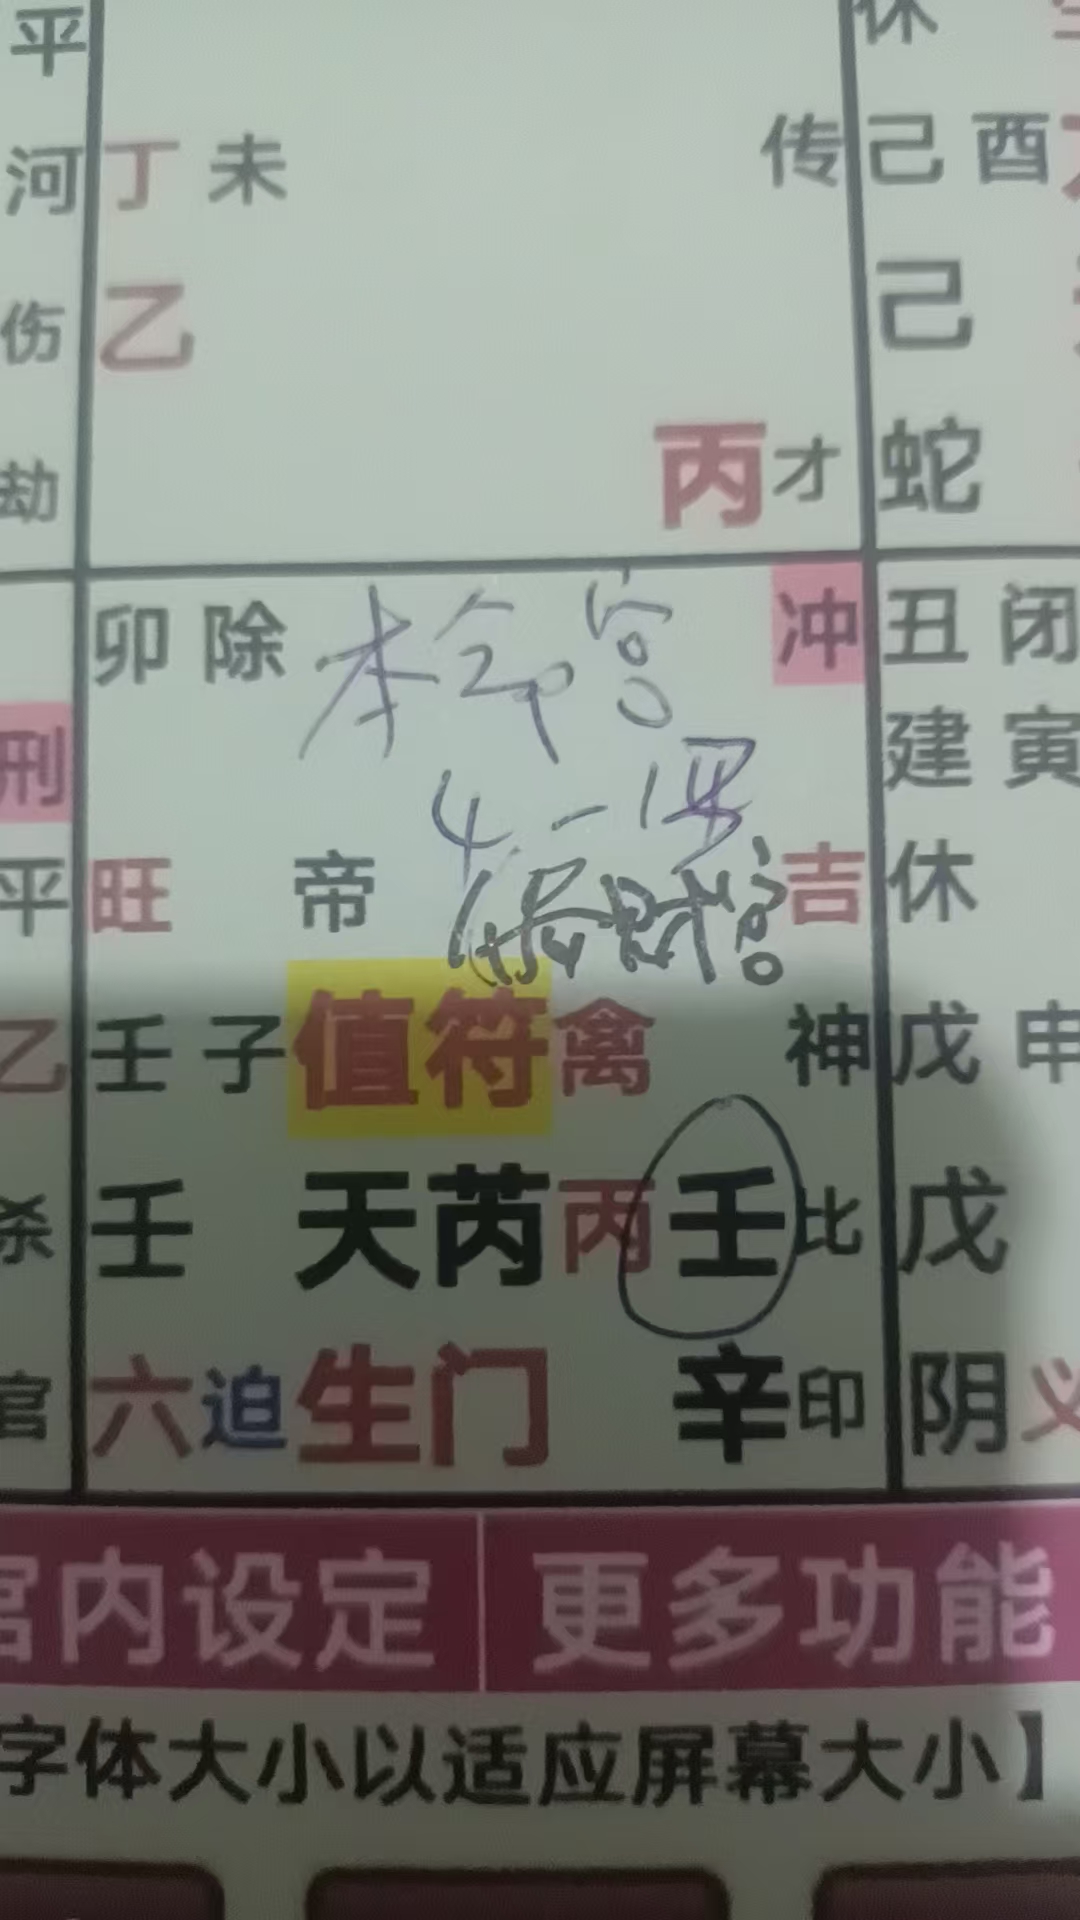 平 休
河 丁 未 传 己 酉
伤 乙 己
劫 丙 才 蛇
卯 除 本命宫 冲 丑 闭
刑 4-1 建 寅
平 旺 帝 财宫 吉 休
乙 壬 子 值符 禽 神 戊 申
杀 壬 天芮 丙 壬 比 戊
官 六 迫 生门 辛 印 阴
宫内设定 更多功能
字体大小以适应屏幕大小】